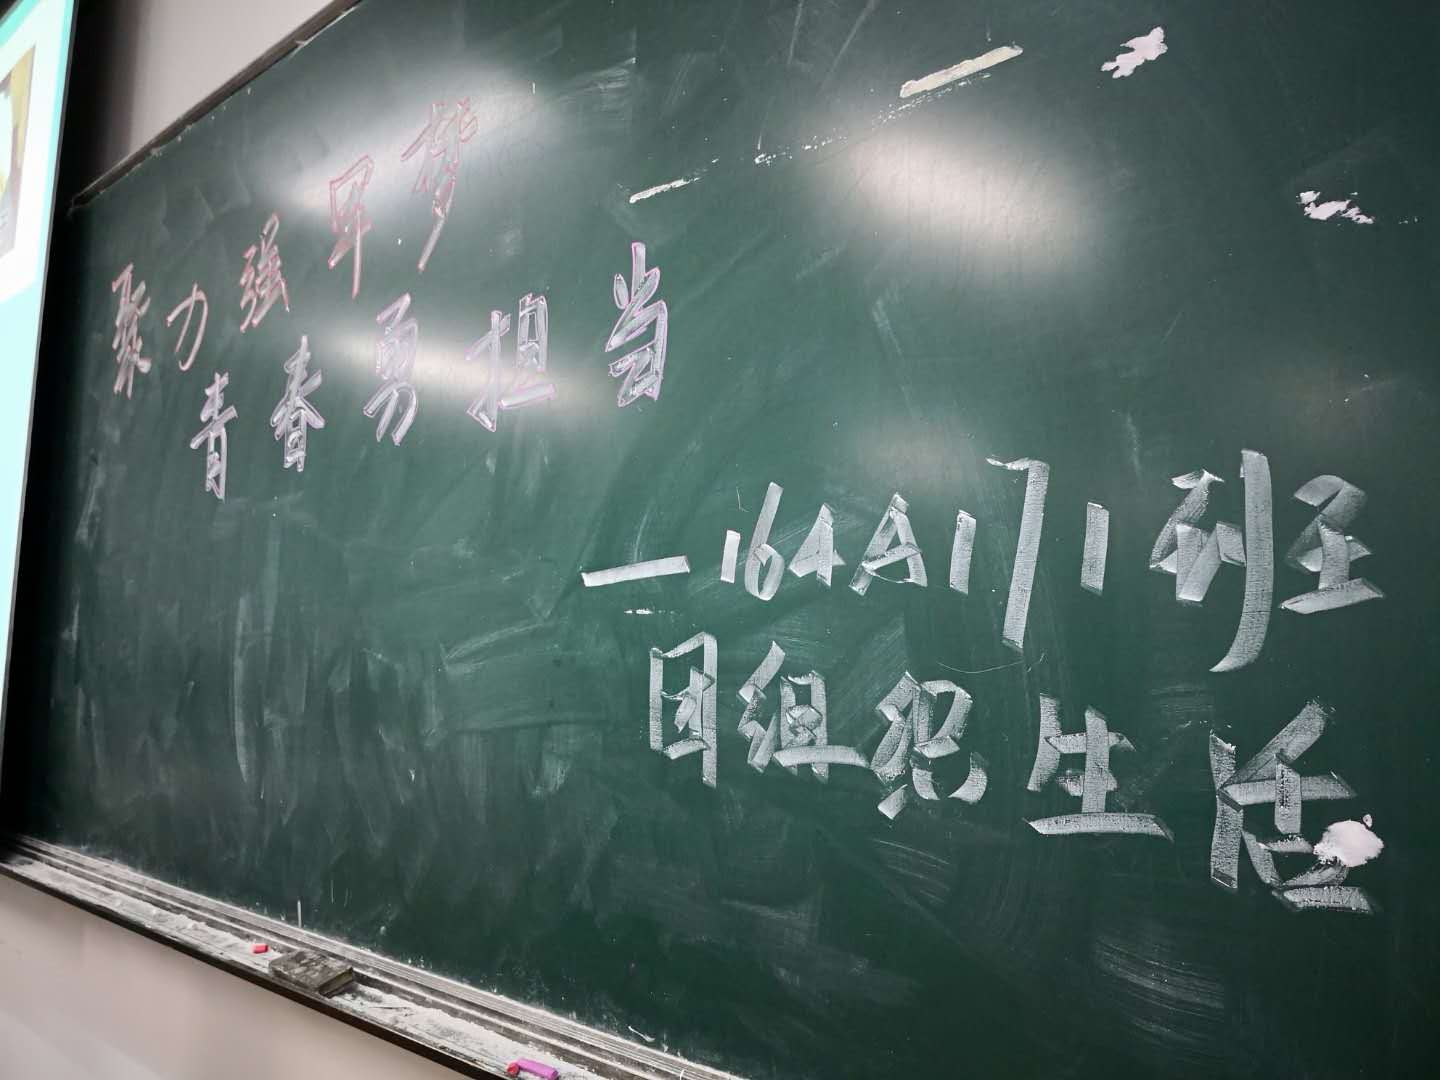 聚力强军梦
青春勇担当
—164A171班
团组织生活